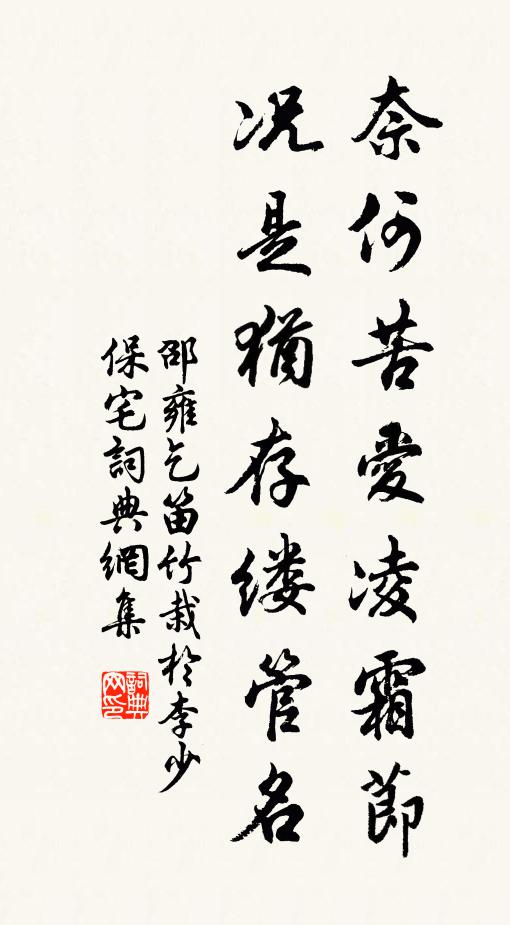 奈何苦愛凌霜節
况是猶存缕管名
邵雍乞笛竹栽於李少
保宅詞典網集
詞典网印